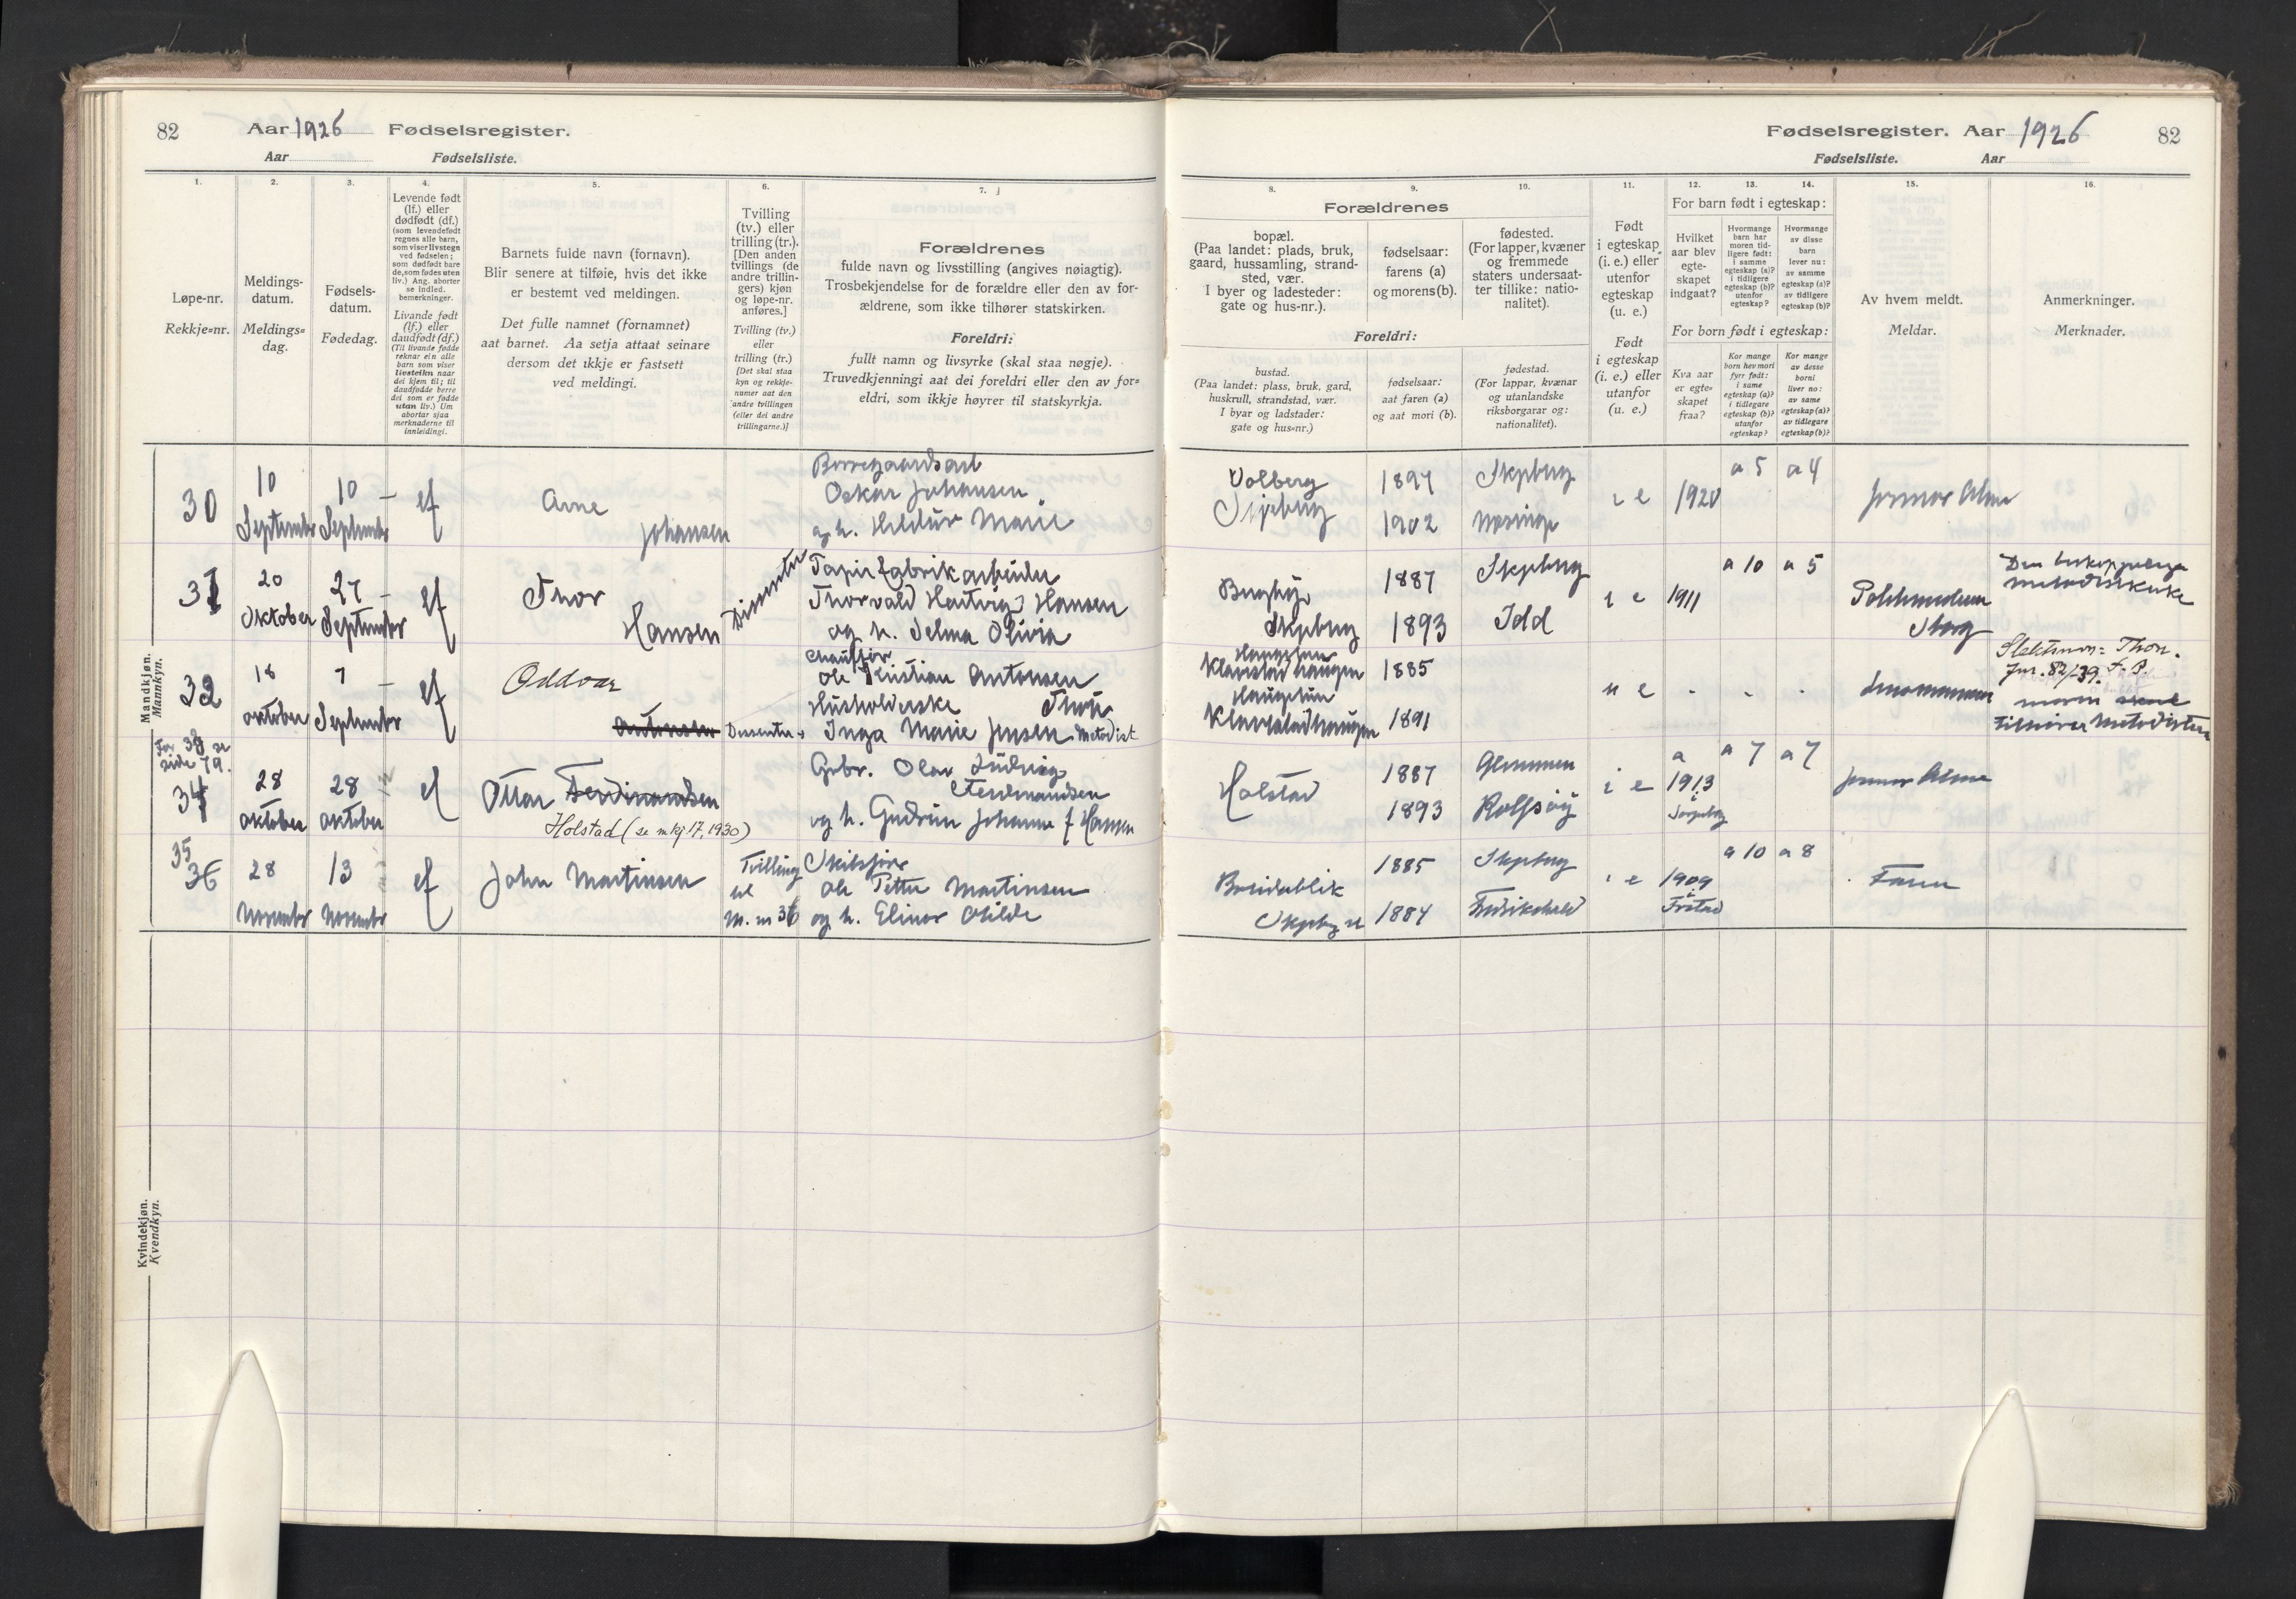 82 Aar 1926 Fødselsregister.
Aar Fødselsliste.
1. 2. 3. 4. 5. 6. 7.
Løpe-nr.
Rekkje=nr.
Meldings-
datum.
Meldings=
dag.
Fødsels-
datum.
Fødedag.
Levende født
(lf.) eller
dødfødt (df.)
(som levendefødt
regnes alle barn,
som viser livstegn
ved fødselen;
som dødfødt bare
de, som fødes uten
liv.) Ang. aborter
se indled.
bemerkninger.
Livande født
(lf.) eller
daudfødt (df.)
(Til livande fødde
reknar ein alle
barn som viser
livsteikn naar
dei kjem til; til
daudfødde berre
dei som er fødde
utan liv.) Um
abortar sjaa
merknaderne til
innleidingi.
Barnets fulde navn (fornavn).
Blir senere at tilføie, hvis det ikke
er bestemt ved meldingen.
Det fulle namnet (fornamnet)
aat barnet. Aa setja attaat seinare
dersom det ikkje er fastsett
ved meldingi.
Tvilling
(tv.) eller
trilling (tr.).
[Den anden
tvillings (de
andre trillin-
gers) kjøn
og løpe-nr.
anføres.]
Tvilling (tv.)
eller
trilling (tr.)
[Det skal staa
kyn og rekkje-
numer aat den
andre tvillingen
(eller dei andre
trillingarne.)]
Forældrenes
fulde navn og livsstilling (angives nøiagtig).
Trosbekjendelse for de forældre eller den av for-
ældrene, som ikke tilhører statskirken.
Foreldri:
fullt namn og livsyrke (skal staa nøgje).
Truvedkjenningi aat dei foreldri eller den av for=
eldri, som ikkje høyrer til statskyrkja.
Mandkjøn.
Mannkyn.
30 10 September 10 September lf Arne Johansen
Oskar Johansen
og h. Marie
31 20 Oktober 27 September lf Thor Hansen Dissenter
Papirfabrikarbeider
Thorvald Hartvig Hansen
og h. Selma Olivia
32 18 oktober 7 September lf Oddvar Antonsen Dissenter
Chauffør
Ole Kristian Antonsen
Husholderske Thon
Inga Marie Jensen Metodist
For 33 se
side 79.
34 28 oktober 28 oktober lf Ottar Ferdinandsen
Holstad (se mkj 17, 1930)
Gbr. Olav Ludvig
Ferdinandsen
og h. Gudrun Johanne f Hansen
35
36 28 November 13 November lf John Martinsen
Tvilling
til
m. nr 36
Ole Petter Martinsen
og h. Elinor Otilde
Kvindekjøn.
Kvendkyn.
Fødselsregister. Aar 1926 82
Fødselsliste. Aar
8. 9. 10. 11. 12. 13. 14. 15. 16.
Forældrenes
bopæl.
(Paa landet: plads, bruk,
gaard, hussamling, strand-
sted, vær.
I byer og ladesteder:
gate og hus-nr.).
fødselsaar:
farens (a)
og morens (b).
fødested.
(For lapper, kvæner
og fremmede
staters undersaat-
ter tillike: natio-
nalitet).
Foreldri:
bustad.
(Paa landet: plass, bruk, gard,
huskrull, strandstad, vær.
I byar og ladstader:
gate og hus=nr.)
fødselsaar:
aat faren (a)
og aat mori (b).
fødestad.
(For lappar, kvænar
og utanlandske
riksborgarar og:
nationalitet).
Født
i egteskap
(i. e.) eller
utenfor
egteskap
(u. e.)
Født
i egteskap
(i. e.) eller
utanfor
(u. e.)
For barn født i egteskap:
Hvilket
aar blev
egte-
skapet
indgaat?
Hvormange
barn har
moren tid-
ligere født:
i samme
egteskap (a)?
i tidligere
egteskap (b)?
utenfor
egteskap?
Hvormange
av disse
barn
lever nu:
av samme
egteskap (a)?
av tidligere
egteskap (b)?
For born født i egteskap:
Kva aar
er egte=
skapet
fraa?
Kor mange
born hev mori
fyrr født:
i same
egteskap (a)?
i tidlegare
egteskap (b)?
utanfor
egteskap?
Kor mange
av desse
borni
liver no:
av same
egteskap (a)?
av tidlegare
egteskap (b)?
Av hvem meldt.
Meldar.
Anmerkninger.
Merknader.
Volberg 1897 Skjeberg i e 1920 a 5 a 4 Jormor Alme
1902
1887 Skjeberg i e 1911 a 10 a 5
Skjeberg 1893 Idd
metodistkirke
Klavestadhaugen 1885 u e - - -
Klavestadhaugen 1891
Slektsnavn: Thon.
Jnr. 82/39. F. P.
tilhører Metodisten
Holstad 1887 Glemmen i e a 1913 i Sarpsborg a 7 a 7 Jormor Alme
1893 Rolfsøy
Breidablik 1885 Skjeberg i e 1909 i Fr.stad a 10 a 8 Faren
Skjeberg st 1884 Fredrikshald